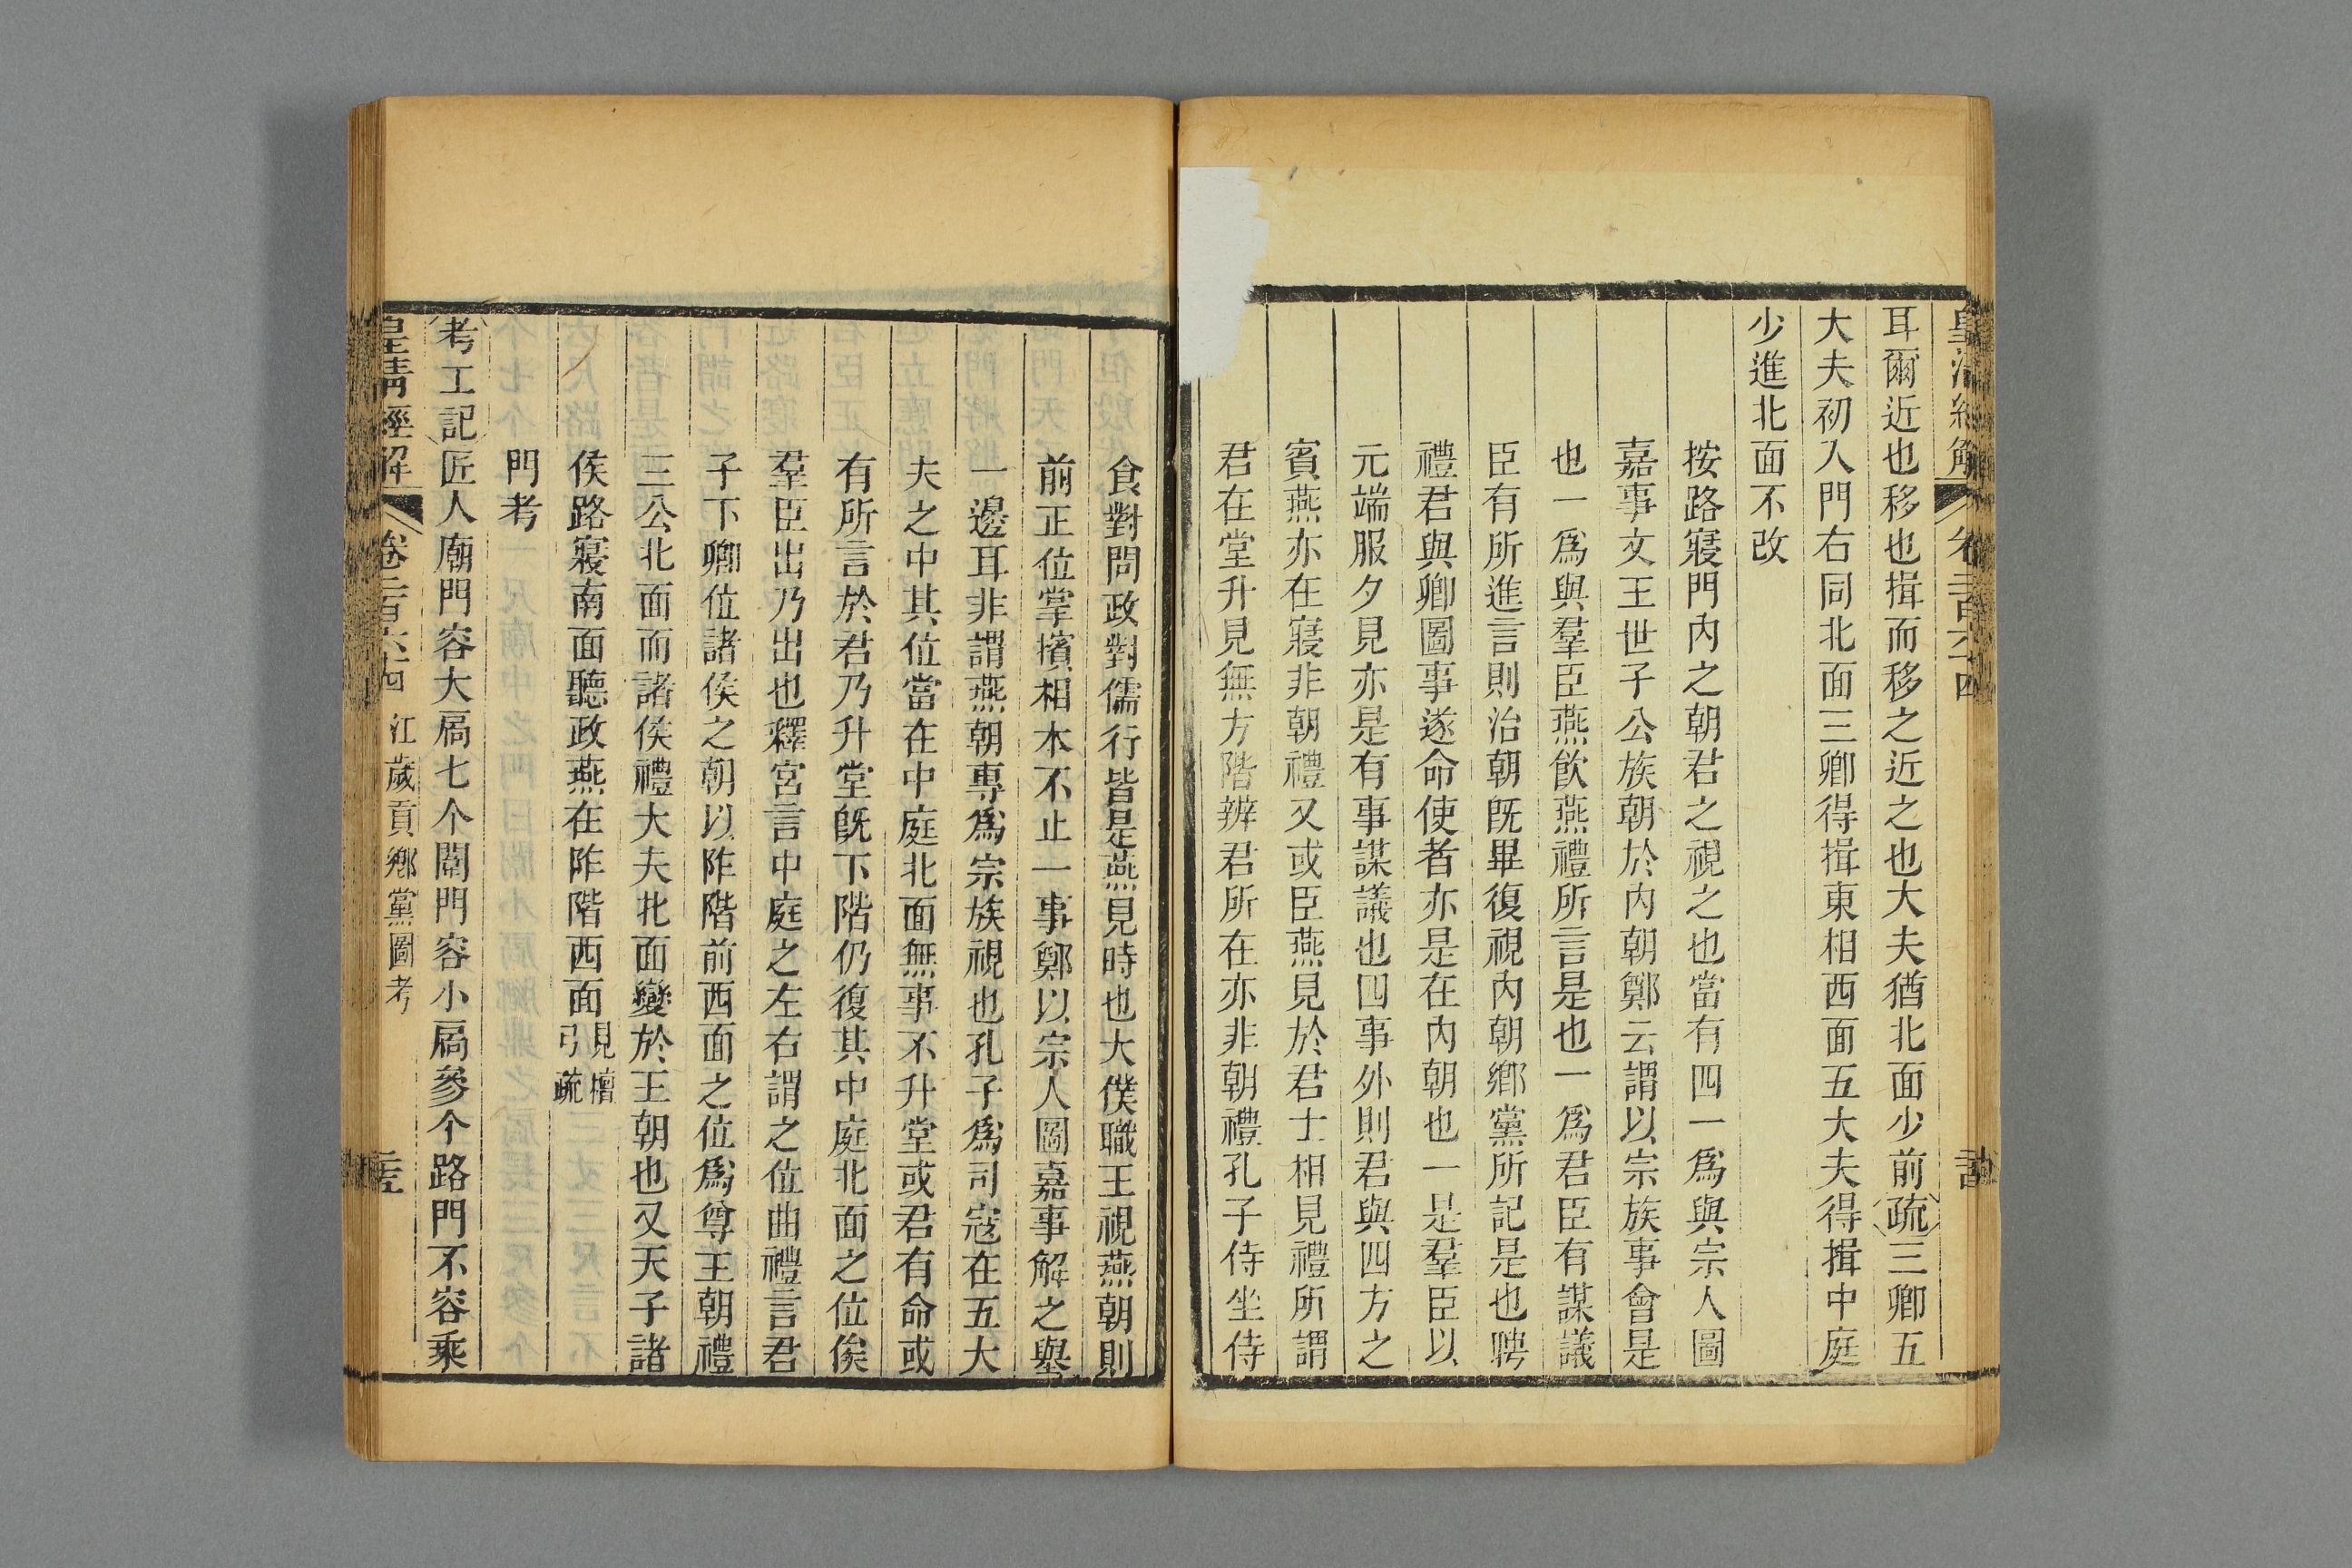 皇清經解 卷二百六十四
耳爾近也移也揖而移之近之也大夫猶北面少前疏三卿五
大夫初入門右同北面三卿得揖東相西面五大夫得揖中庭
少進北面不改
按路寢門內之朝君之視之也當有四一爲與宗人圖
嘉事文王世子公族朝於內朝鄭云謂以宗族事會是
也一爲與羣臣燕飲燕禮所言是也一爲君臣有謀議
臣有所進言則治朝旣畢復視內朝鄉黨所記是也聘
禮君與卿圖事遂命使者亦是在內朝也一是羣臣以
元端服夕見亦是有事謀議也四事外則君與四方之
賓燕亦在寢非朝禮又或臣燕見於君士相見禮所謂
君在堂升見無方階辨君所在亦非朝禮孔子侍坐侍
食對問政對儒行皆是燕見時也大僕職王視燕朝則
前正位掌擯相本不止一事鄭以宗人圖嘉事解之舉
一邊耳非謂燕朝專爲宗族視也孔子爲司寇在五大
夫之中其位當在中庭北面無事不升堂或君有命或
有所言於君乃升堂旣下階仍復其中庭北面之位俟
羣臣出乃出也釋宮言中庭之左右謂之位曲禮言君
子下卿位諸侯之朝以阼階前西面之位爲尊王朝禮
三公北面而諸侯禮大夫北面變於王朝也又天子諸
侯路寢南面聽政燕在阼階西面見檀弓疏
門考
考工記匠人廟門容大扃七个闈門容小扃參个路門不容乘
皇清經解 卷二百六十四 江歲貢鄉黨圖考